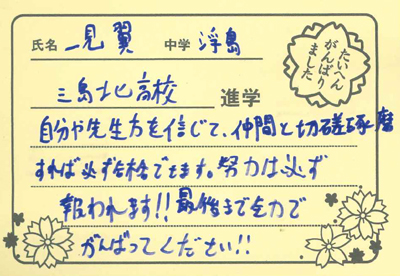 氏名 一見 翼 中学 浮島
たいへん
がんばり
ました
三島北高校 進学
自分や先生方を信じて、仲間と切磋琢磨
すれば必ず合格できます。努力は必ず
報われます!!最後まで全力で
がんばってください!!